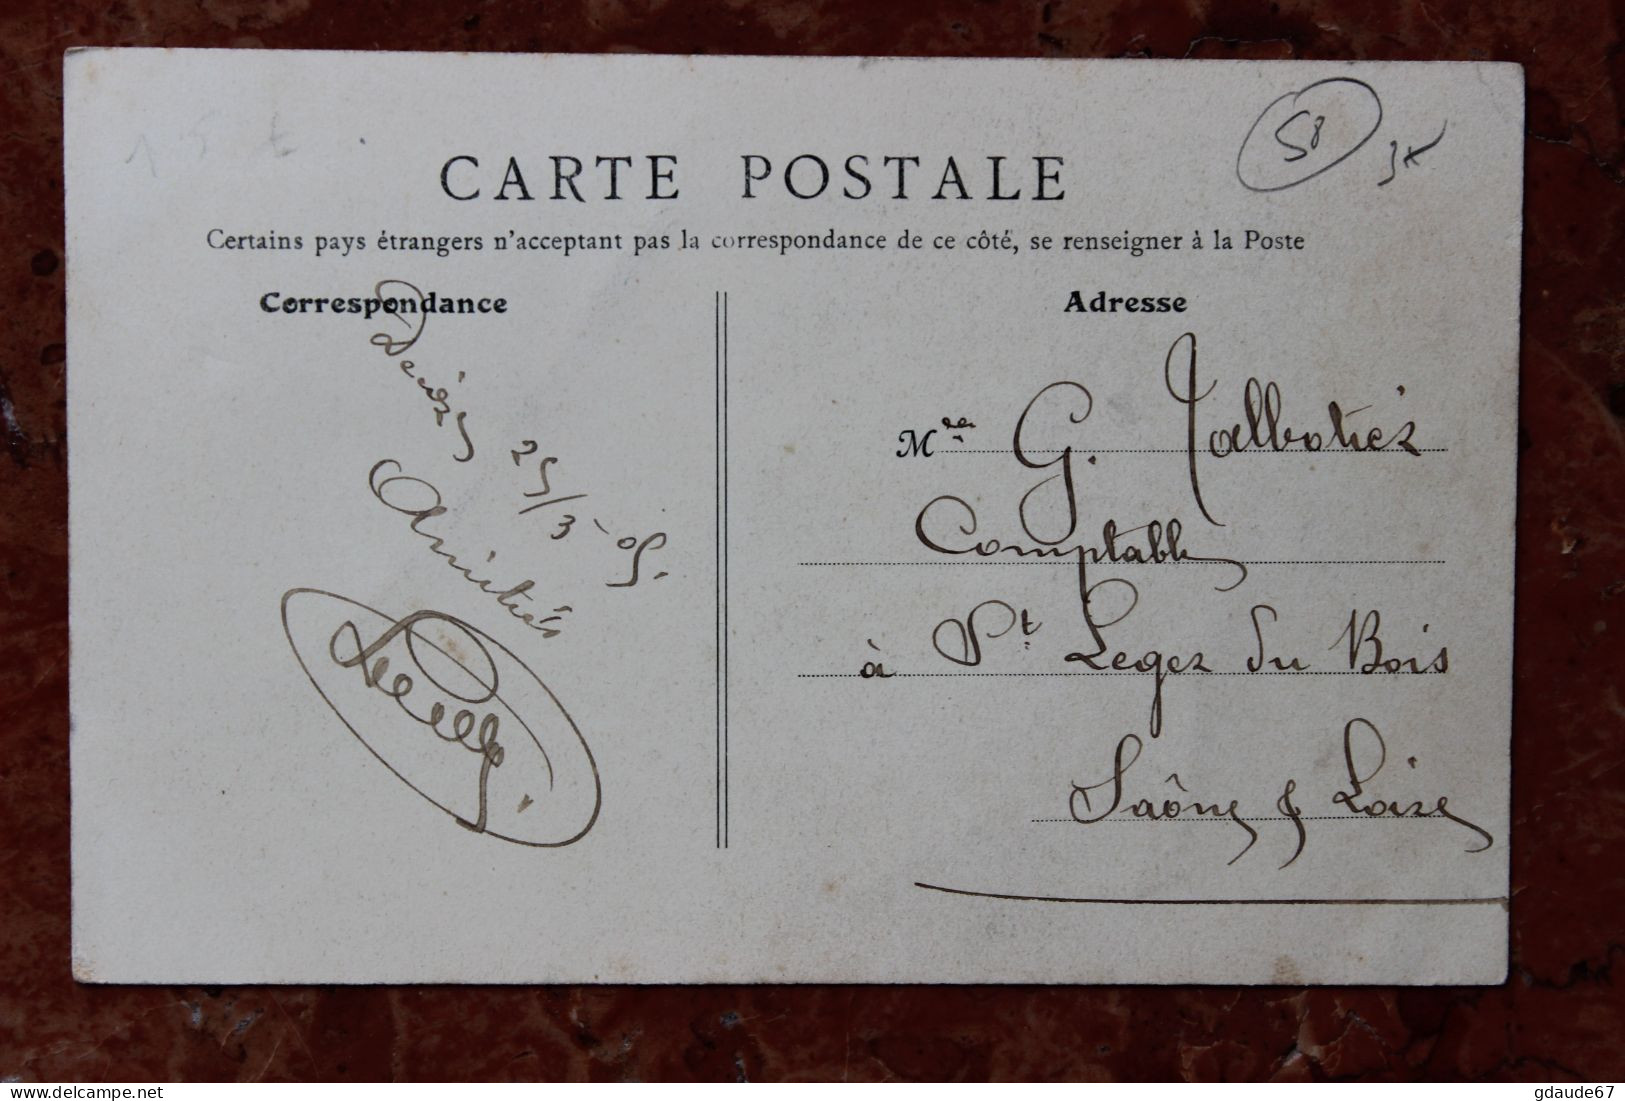 58
CARTE POSTALE
Certains pays étrangers n'acceptant pas la correspondance de ce côté, se renseigner à la Poste
Correspondance
25/3-05.
Amitiés
Adresse
M G. Talbotier
Comptable
à St Leger du Bois
Saône & Loire
gdaude67